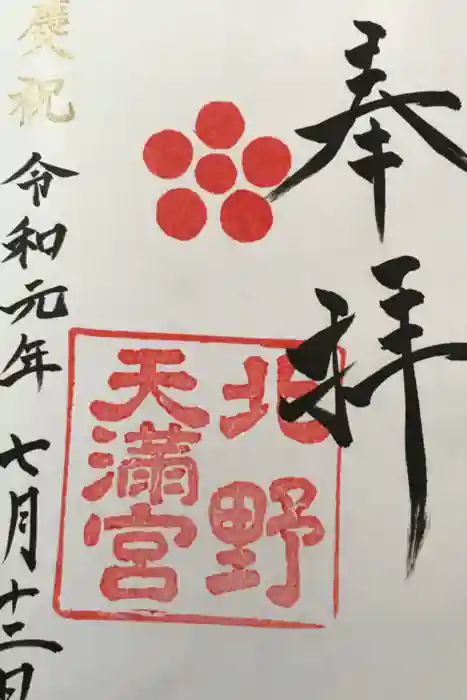 奉拝
北野
天満宮
慶祝
令和元年七月十二日